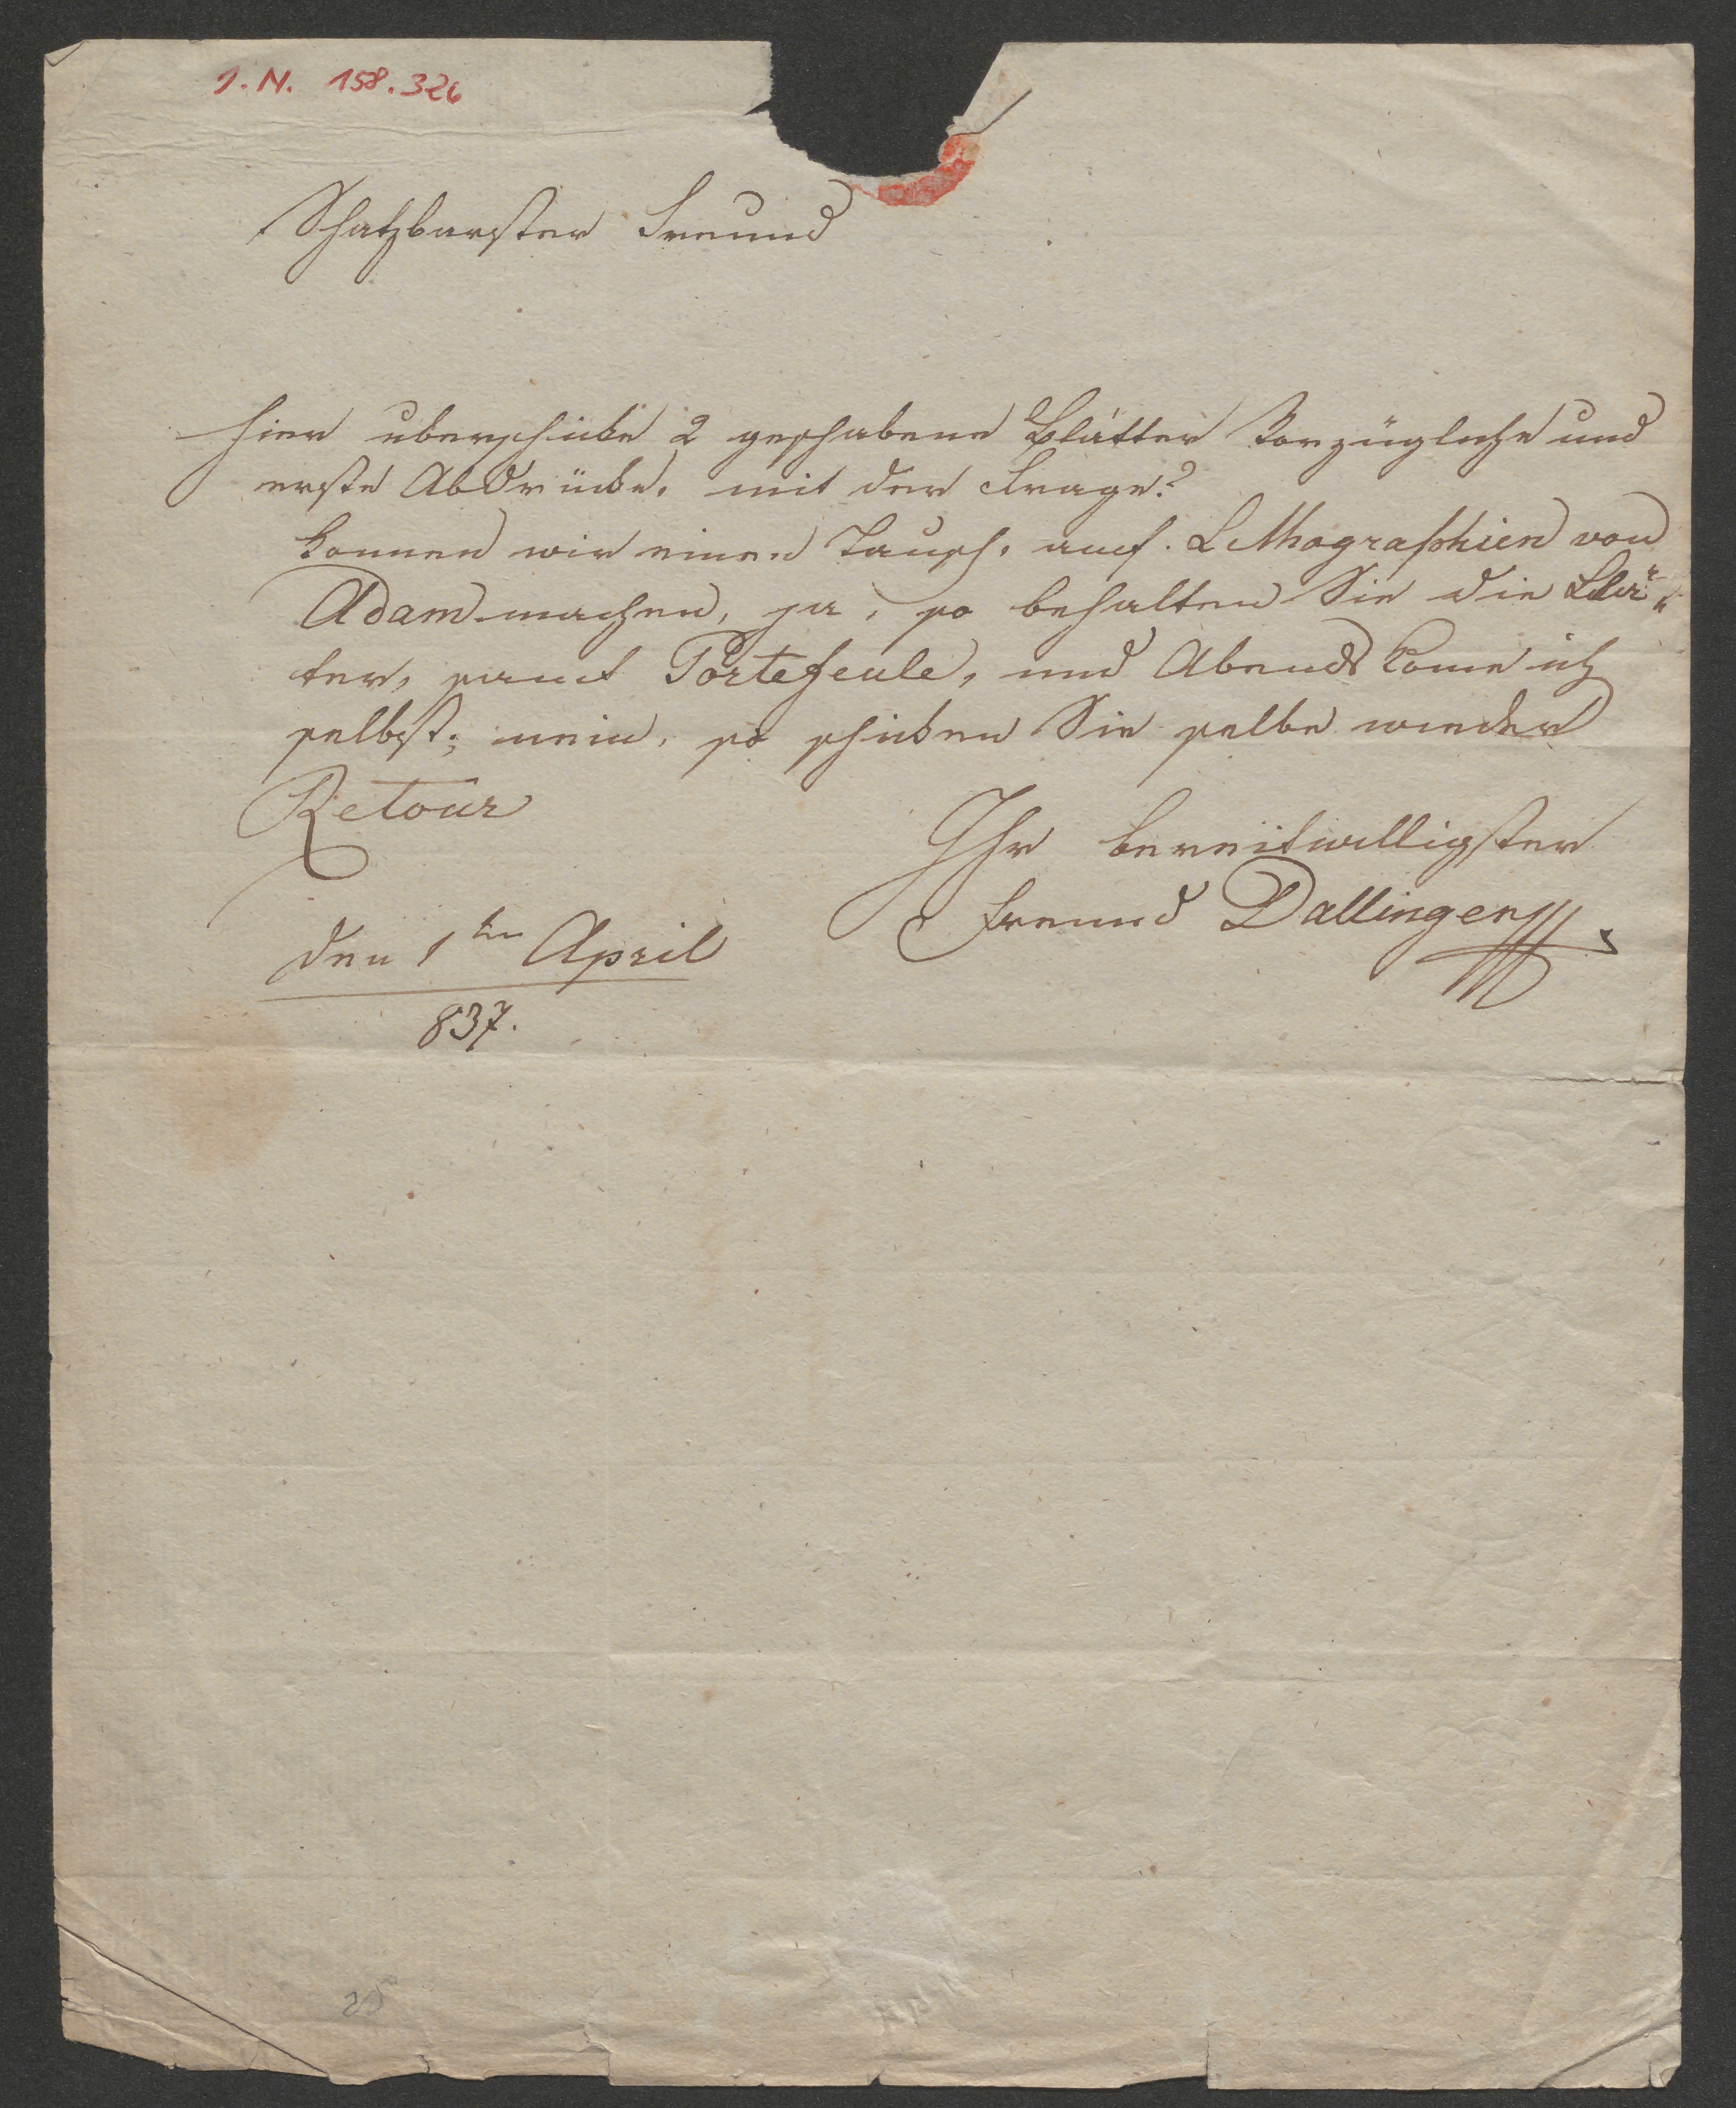 I.N. 158.326
Schatzbarster Freund
Hier uberschicke 2 geschabene Blätter Vorzügliche und
erste Abdrücke, mit der Frage?
konnen wir einen Tausch, auf. Lithographien von
Adam machen, ja, so behalten Sie die Blä„
ter, samt Portefeule, und Abends kome ich
selbst; nein, so schicken Sie selbe wieder
Retour
Ihr bereitwilligster
Freund Dallinger
den 1ten April
837.